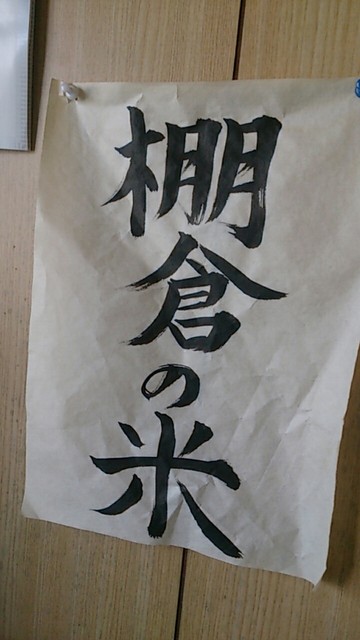 棚倉の米